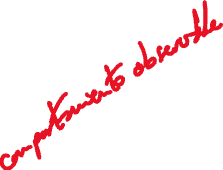 comportamiento observable